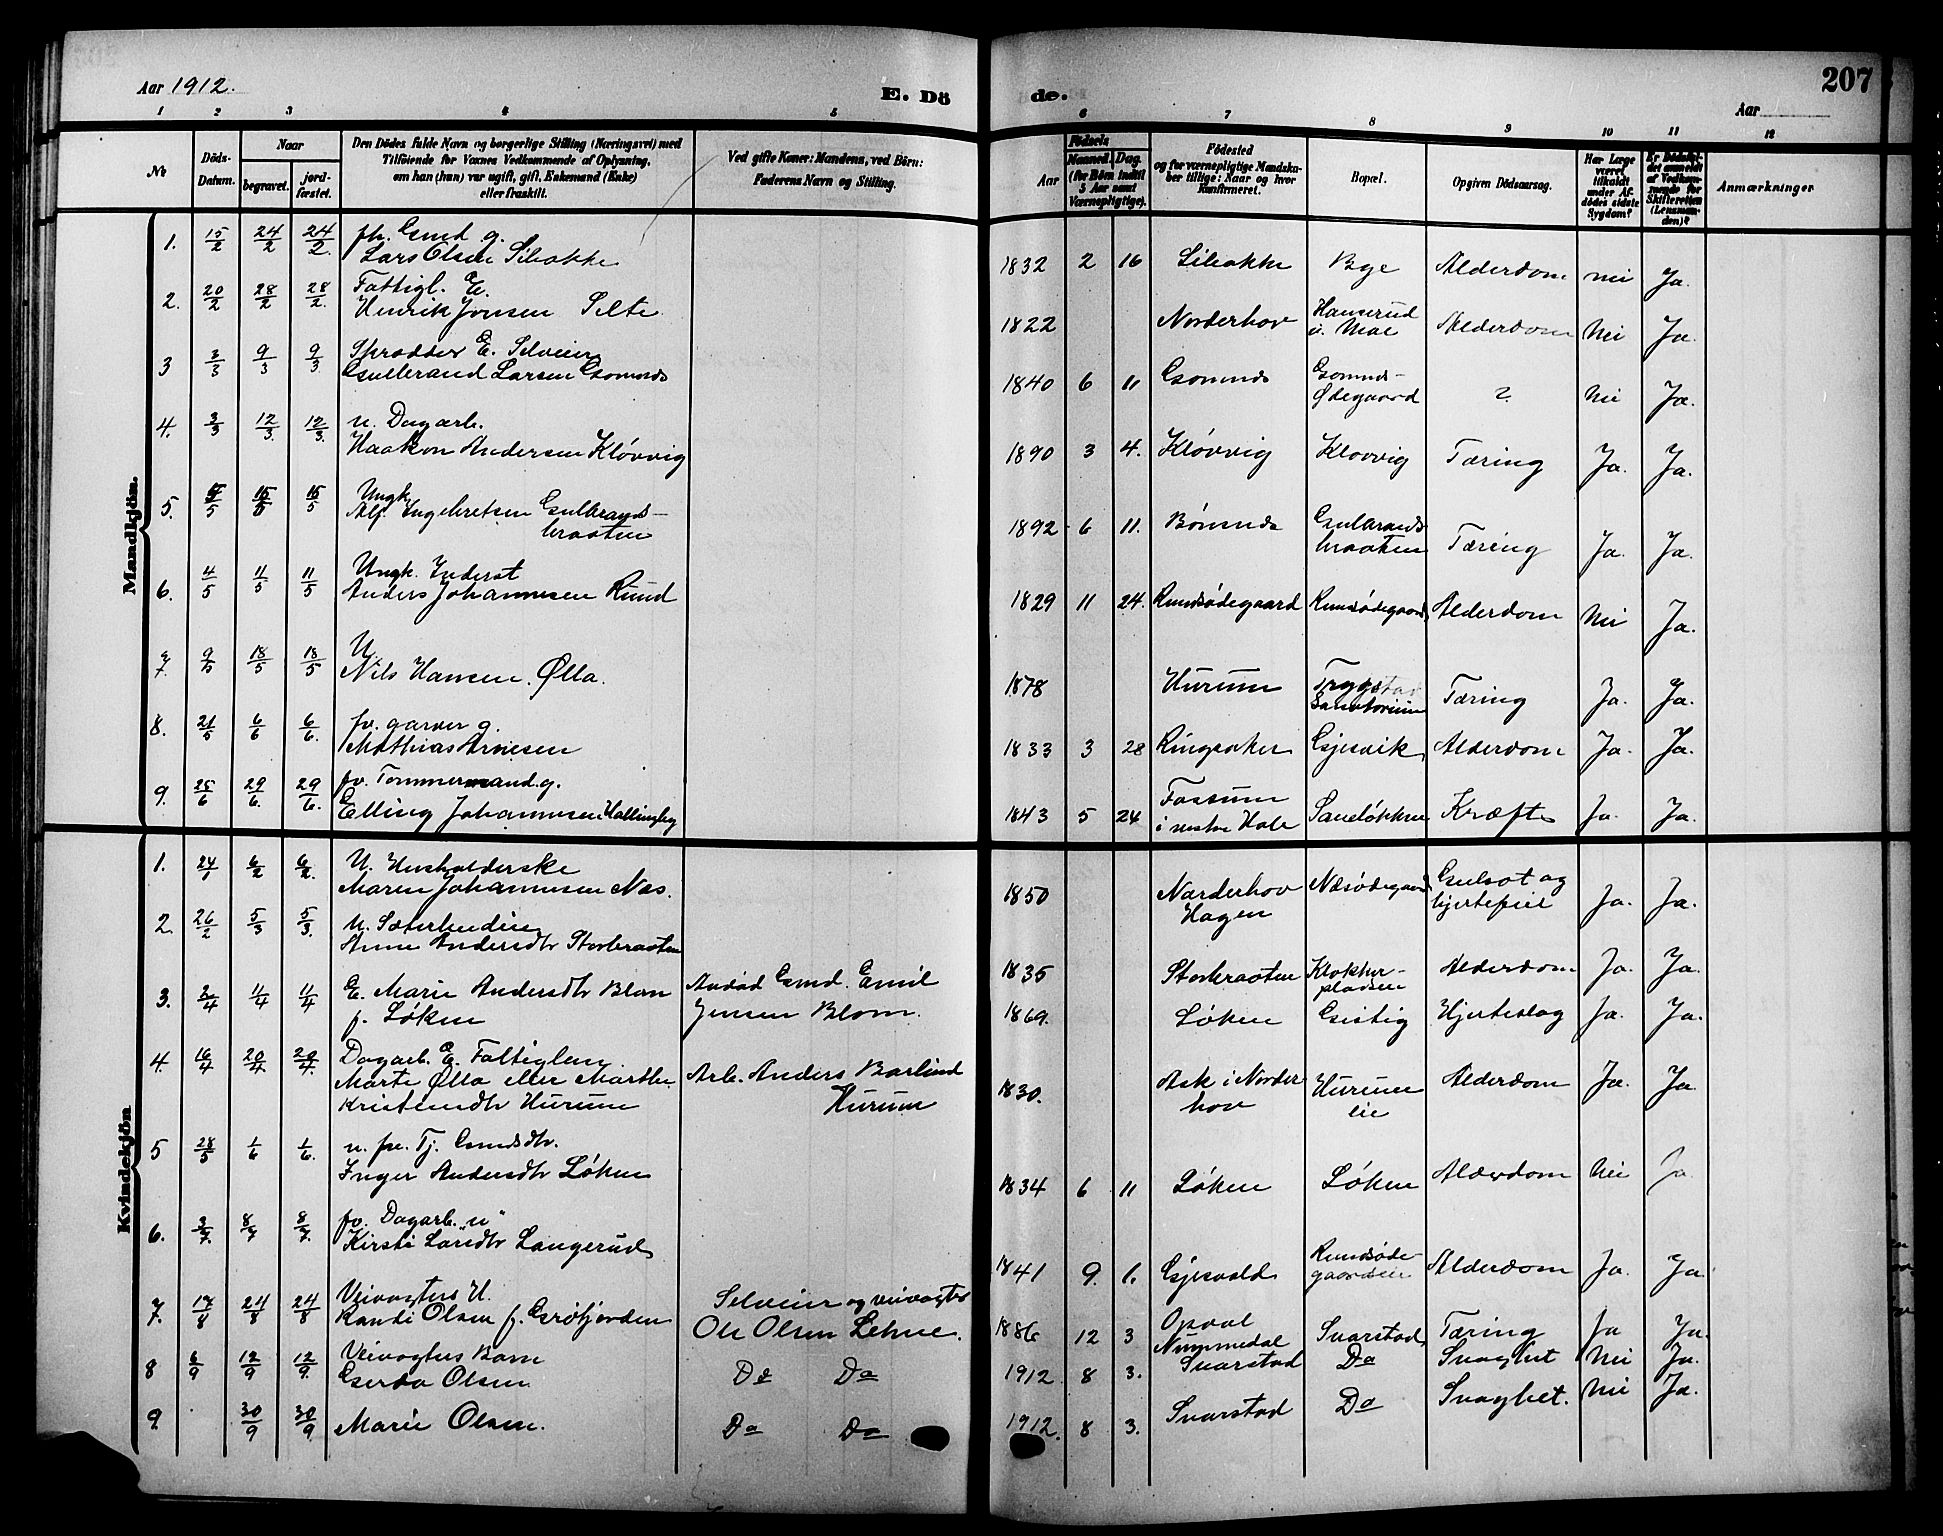 Aar 1912.
E. Dö
de.
Aar
207
1 2 3 4 5
6 7 8 9 10 11 12
No
Döds-Datum.
Naar
begravet.
jord-fæstet.
Den Dödes fulde Navn og borgerlige Stilling (Næringsvei) med
Tilföiende for Voxnes Vedkommende af Oplysning,
om han (hun) var ugift, gift, Enkemand (Enke)
eller fraskilt.
Ved gifte Koner: Mandens, ved Börn:
Faderens Navn og Stilling.
Födsels
Aar
Maaned. Dag.
(for Börn indtil
5 Aar samt
Værnepligtige).
Födested
og for værnepligtige Mandska-
ber tillige: Naar og hvor
Konfirmeret.
Bopæl.
Opgiven Dödsaarsag.
Har Læge
været
tilkaldt
under Af-
dödes sidste
Sygdom?
Er Dödsfal-
det anmeldt
af Vedkom-
mende for
Skifteretten
(Lensman-
den)?
Anmærkninger
Mandkjön.
1. 15/2 24/2 24/2 fh. Gmd g.
Lars Olsen Libakke 1832 2 16 Libakke Bye Alderdom nei Ja.
2. 20/2 28/2 28/2 Fattigl. E.
Henrik Jonsen Selte 1822 Norderhov Hanserud u. Moe Alderdom Nei Ja.
3 3/3 9/3 9/3 Skrædder E. Selveier
Gulbrand Larsen Gomnæs 1840 6 11 Gomnæs Gomnæs-Ødegaard ? Nei Ja.
4. 3/3 12/3 12/3 u. Dagarb.
Haakon Andersen Kløvvig 1890 3 4. Kløvvig Klovvig Tæring Ja. Ja.
5. 15/5 15/5 Ungk.
Alf Ingebretsen Gulbrands-
braaten 1892 6 11. Bønsnæs Gulbrands braaten Tæring Ja. Ja.
6. 4/5 11/5 11/5 Ungk. Inderst
Anders Johannesen Rund 1829 11 24. Rundsødegaard Rundsødegaard Alderdom Nei Ja.
7. 9/5 18/5 18/5 U.
Nils Hansen Ølla. 1878 Hurum Trygstad Sanatorium Tæring Ja. Ja.
8. 21/5 6/6 6/6. fv. garver g.
Mathias Arnesen 1833 3 28 Ringsaker Gjesvik Alderdom Ja. Ja.
9. 25/6 29/6. 29/6. fv. Tømmermand. g.
Elling Johannesen Hallingby 1843 5 24 Fossum i nestre Hole Sandløkken Kræft Ja. Ja.
Kvindekjön
1. 24/1 6/2 6/2. U. Husholderske
Maren Johannesen Næs. 1850 Norderhov Hagen Næsødegaard Gulsot og hjertefeil Ja. Ja.
2. 26/2 5/3 5/3. U. Sæterbudeie
Anne Andersdtr Storbraaten 1835 Storbraaten Klokker-pladsen Alderdom Ja. Ja.
3. 2/4 11/4 11/4 E. Marie Andersdtr Blom Avdød Gmd. Emil
f. Løken Jensen Blom. 1869. Løken Gistig Hjerteslag Ja. Ja.
4. 16/4 20/4 20/4. Dagarb. E. Fattiglem
Marte Ølla eller Marthe Arb. Anders Barlind
Kristensdtr Hurum Hurum 1830. Ask i Norder hov Hurum eie Alderdom Ja. Ja.
5 28/5 1/6 1/6. u. fv. Tj. Gmdsdtr.
Inger Andersdtr Løken 1834 6 11 Løken Løken Alderdom Nei Ja
6. 3/7. 8/7 8/7. fv. Dagarb. "u"
Kirsti Larsdtr Langerud 1841 9. 1. Gjesvold Rundsøde-gaardeie Alderdom Ja. Ja.
7. 17/8 24/8 24/8 Veivogters H. Selveier og veivogter
Randi Olsen f. Grøtjorden Ole Olsen Lehne. 1886 12 3 Opdal Nummedal Svarstad Tæring Ja Ja.
8 6/9 12/9 12/9. Veivogters Barn
Gerda Olsen Do Do 1912. 8 3. Svarstad Do Svaghet Nei Ja.
9. 30/9 30/9. Marie Olsen. Do Do 1912. 8 3. Svarstad Do Svaghet. Nei Ja.